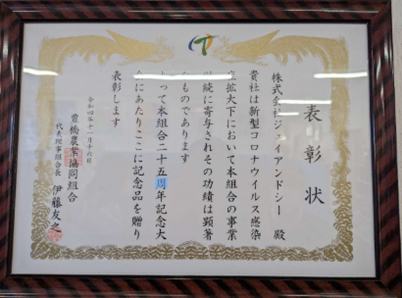 表彰状
株式会社ジェイアンドシー 殿
貴社は新型コロナウイルス感染
症拡大下において本組合の事業
継続に寄与されその功績は顕著
なものであります
よって本組合二十五周年記念大
会にあたりここに記念品を贈り
表彰します
令和四年十一月十六日
豊橋農業協同組合
代表理事組合長 伊藤友之